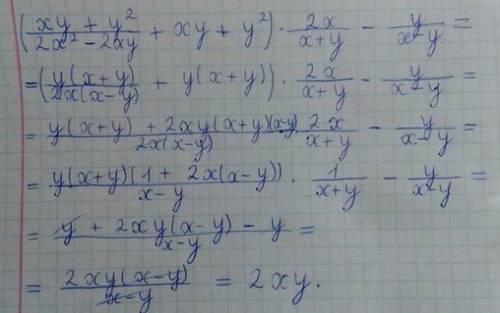 ((xy + y²)/(2x² - 2xy) + xy + y²) · 2x/(x+y) - y/(x-y) =
= (y(x+y)/(2x(x-y)) + y(x+y)) · 2x/(x+y) - y/(x-y) =
= (y(x+y) + 2xy(x+y)(x-y))/(2x(x-y)) · 2x/(x+y) - y/(x-y) =
= (y(x+y)(1 + 2x(x-y)))/(x-y) · 1/(x+y) - y/(x-y) =
= (y + 2xy(x-y) - y)/(x-y) =
= (2xy(x-y))/(x-y) = 2xy.